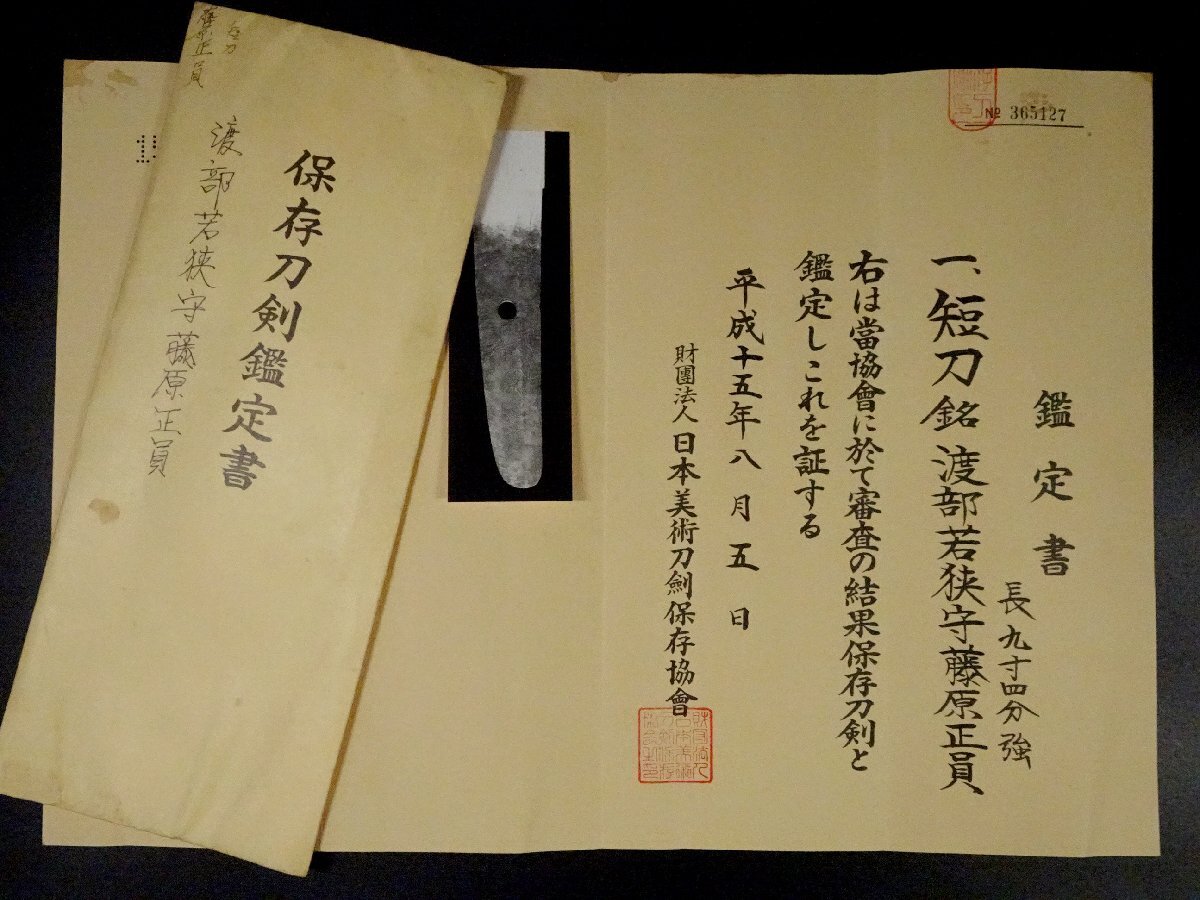 № 365127
鑑定書
一、短刀 銘 渡部若狭守藤原正員
長九寸四分強
右は當協會に於て審査の結果保存刀剣と
鑑定しこれを証する
平成十五年八月五日
財團法人 日本美術刀劍保存協會
保存刀剣鑑定書
渡部若狭守藤原正員
短刀
藤原正員